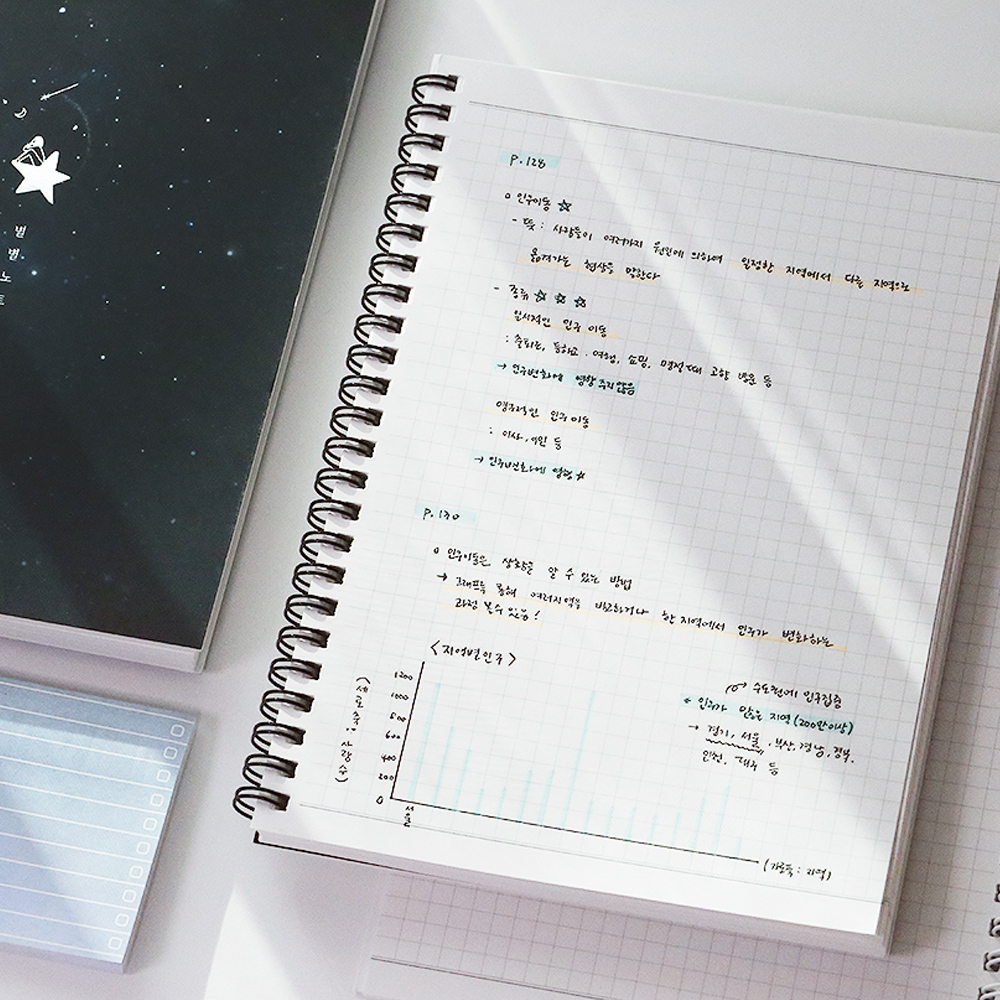 별
별
노
트
P.128
o 인구이동 ☆
- 뜻 : 사람들이 여러가지 원인에 의하여 일정한 지역에서 다른 지역으로
옮겨가는 현상을 말한다
- 종류 ☆ ☆ ☆
일시적인 인구 이동
: 출퇴근, 등하교, 여행, 쇼핑, 명절 때 고향 방문 등
→ 인구변화에 영향 주지 않음
영구적인 인구 이동
: 이사, 이민 등
→ 인구변화에 영향 ☆
P.130
o 인구이동은 상황을 알 수 있는 방법
→ 그래프를 통해 여러지역을 비교하거나 한 지역에서 인구가 변화하는
과정 볼수 있음!
<지역별 인구>
(세로축: 사람 수)
1200
1000
800
600
400
200
0
서울
(가로축 : 지역)
수도권에 인구집중
* 인구가 많은 지역 (200만이상)
→ 경기, 서울, 부산, 경남, 경북,
인천, 대구 등